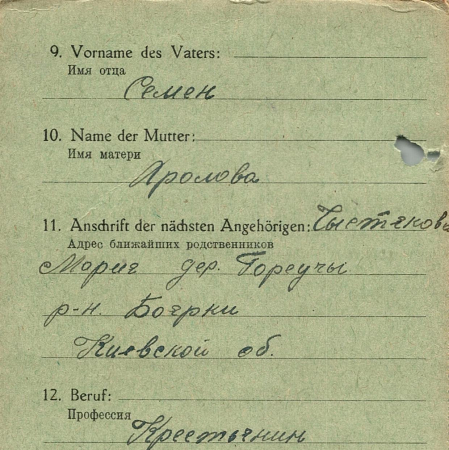 9. Vorname des Vaters:
Имя отца
Семен
10. Name der Mutter:
Имя матери
Хролова
11. Anschrift der nächsten Angehörigen: Чыстякова
Адрес ближайших родственников
Мария дер. Гореучы
р-н. Боярки
Киевской об.
12. Beruf:
Профессия
Крестьянин